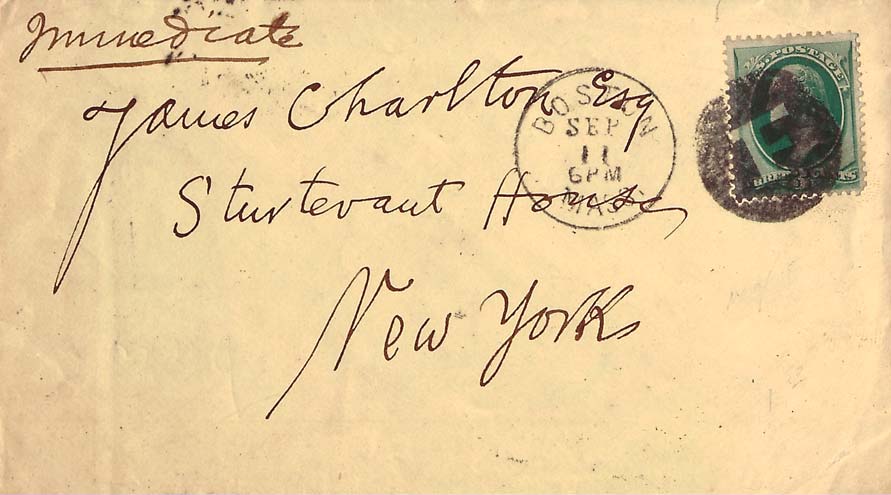 Immediate
James Charlton Esq
Sturtevant House
New York
BOSTON
SEP
11
6PM
MASS.
U.S. POSTAGE
THREE CENTS